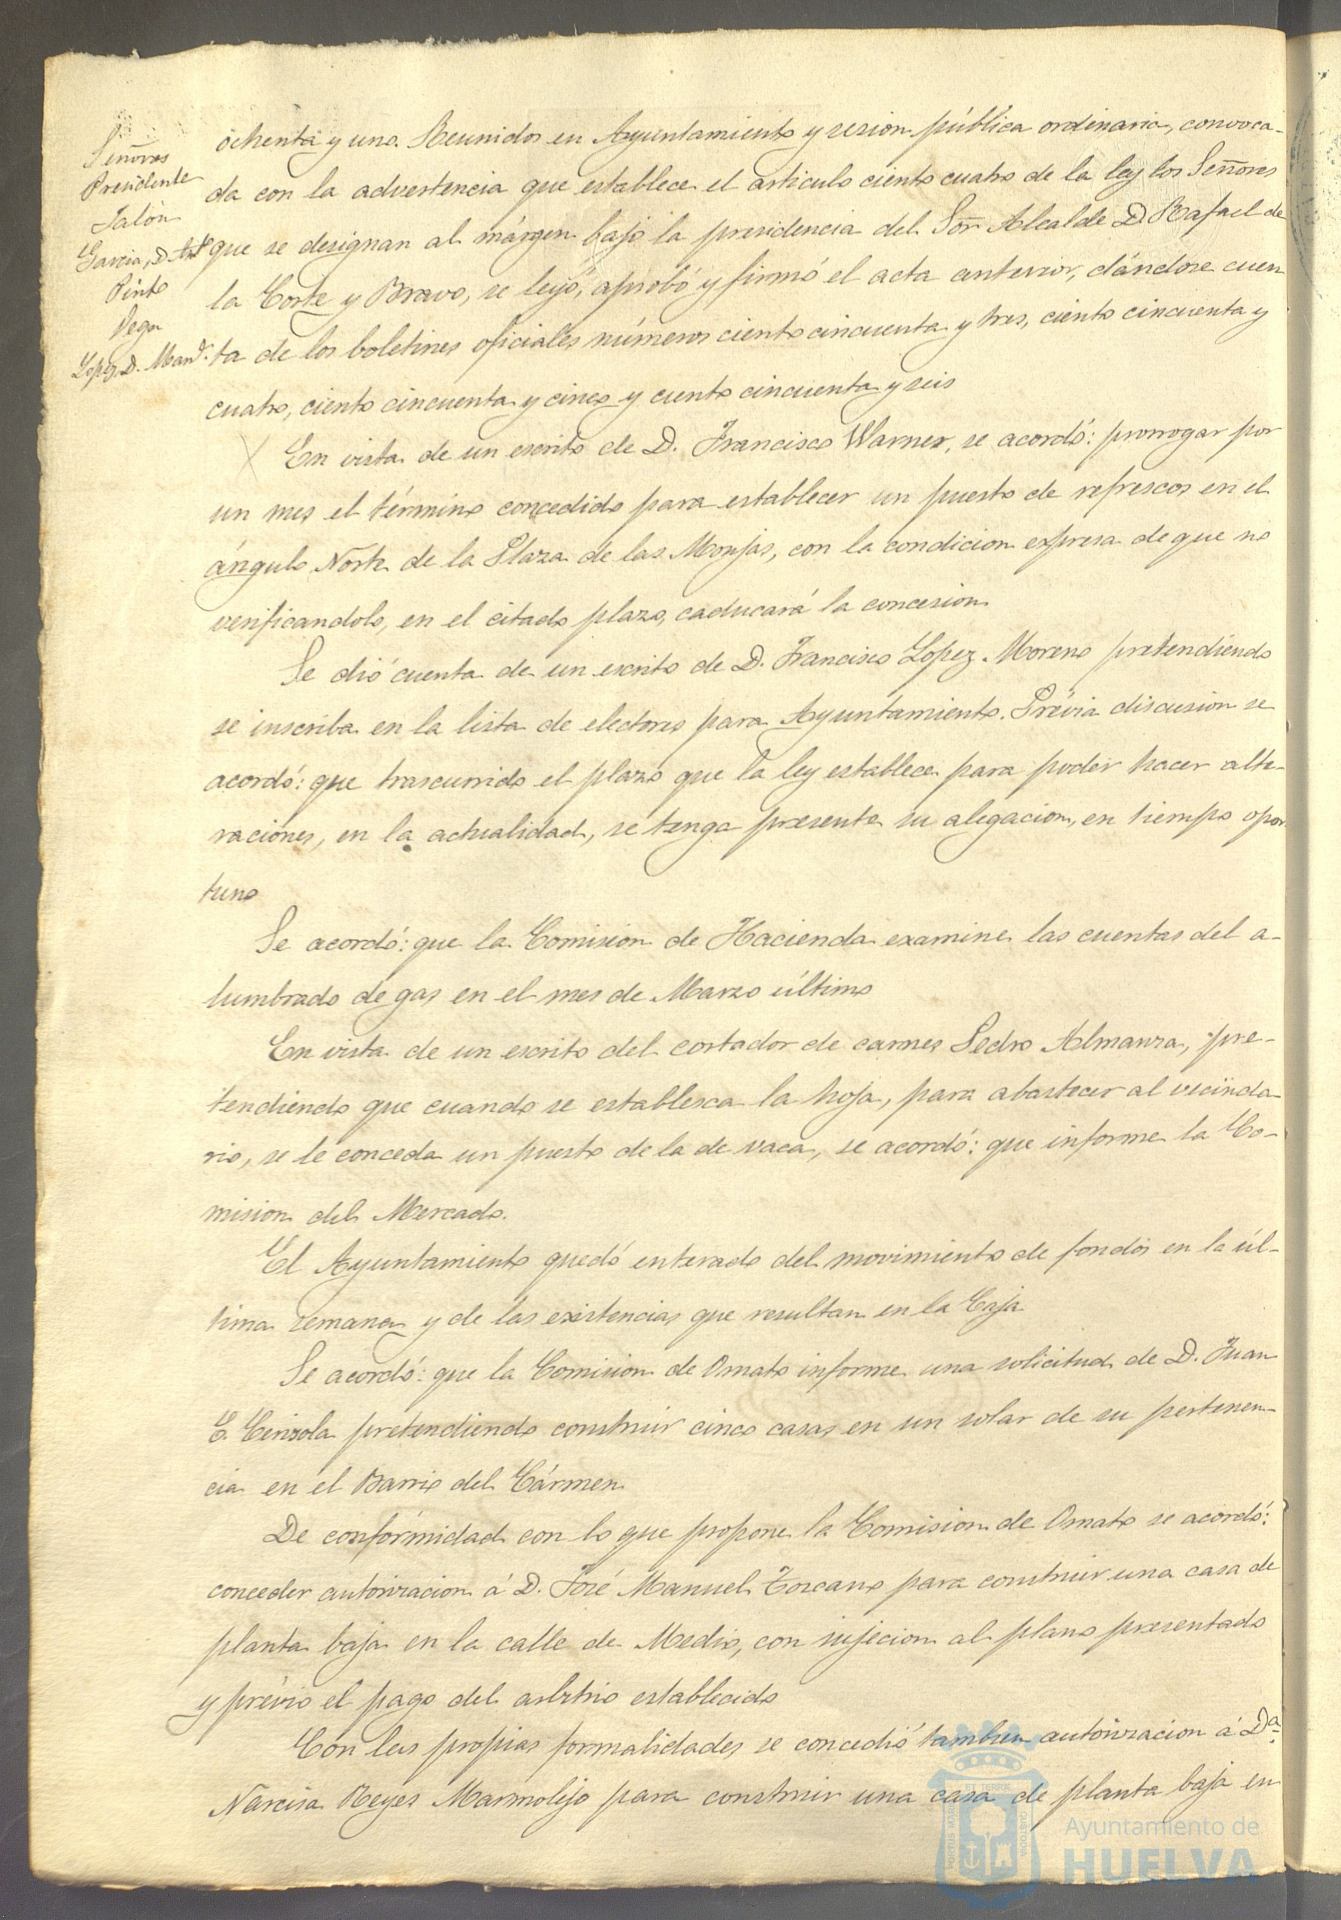 Señores
Presidente
Jalón
Garcia, D. Ant.º
Pinto
Vega
Lopez, D. Man.l
ochenta y uno. Reunidos en Ayuntamiento y sesion pública ordinaria, convoca-
da con la advertencia que establece el articulo ciento cuatro de la ley los Señores
que se designan al márgen bajo la presidencia del Sor. Alcalde D. Rafael de
la Corte y Bravo, se leyó, aprobó y firmó el acta anterior, dándose cuen
ta de los boletines oficiales números ciento cincuenta y tres, ciento cincuenta y
cuatro, ciento cincuenta y cinco y ciento cincuenta y seis
En vista de un escrito de D. Francisco Warner, se acordó: prorrogar por
un mes el término concedido para establecer un puesto de refrescos en el
ángulo Norte de la Plaza de las Monjas, con la condicion expresa de que no
verificandolo, en el citado plazo, caducará la concesion
Se dió cuenta de un escrito de D. Francisco Lopez Moreno pretendiendo
se inscriba en la lista de electores para Ayuntamiento. Prévia discusion se
acordó: que trascurrido el plazo que la ley establece para poder hacer alte-
raciones, en la actualidad, se tenga presente su alegacion, en tiempo opor
tuno
Se acordó: que la Comision de Hacienda examine las cuentas del a-
lumbrado de gas en el mes de Marzo último
En vista de un escrito del cortador de carnes Pedro Almanza, pre-
tendiendo que cuando se establesca la hoja, para abastecer al vecinda
rio, se le conceda un puesto de la de vaca, se acordó: que informe la Co-
mision del Mercado.
El Ayuntamiento quedó enterado del movimiento de fondos en la úl-
tima semana y de las existencias que resultan en la Caja
Se acordó: que la Comision de Ornato informe una solicitud de D. Juan
C. Cerisola pretendiendo construir cinco casas en un solar de su pertenen-
cia en el Barrio del Cármen
De conformidad con lo que propone la Comision de Ornato se acordó:
conceder autorizacion á D. José Manuel Toscano para construir una casa de
planta baja en la calle de Medio, con sujecion al plano presentado
y prévio el pago del arbitrio establecido
Con las propias formalidades se concedió tambien autorizacion á D.ª
Narcisa Reyes Marmolejo para construir una casa de planta baja en
Ayuntamiento de
HUELVA